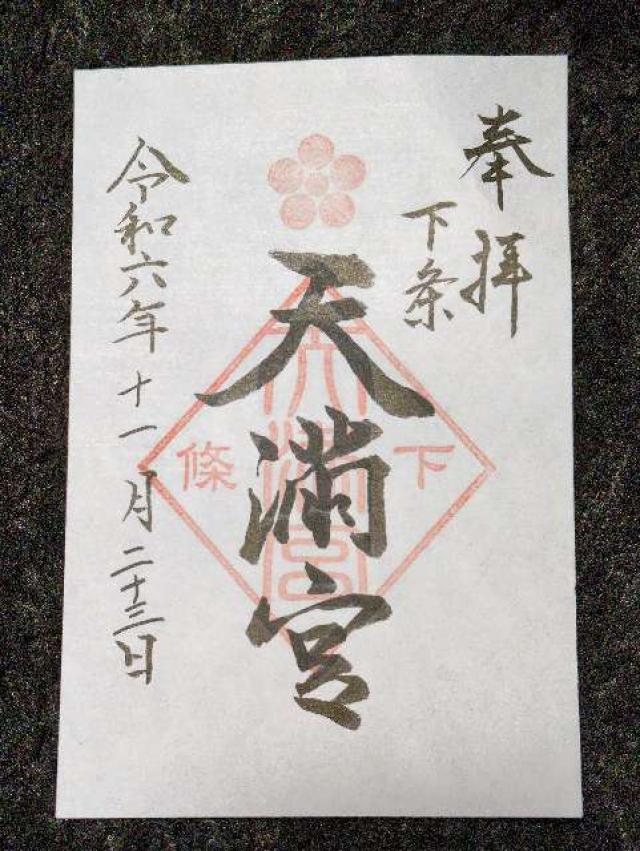 奉拝
下条
天満宮
下條
天満宮
令和六年十一月二十三日